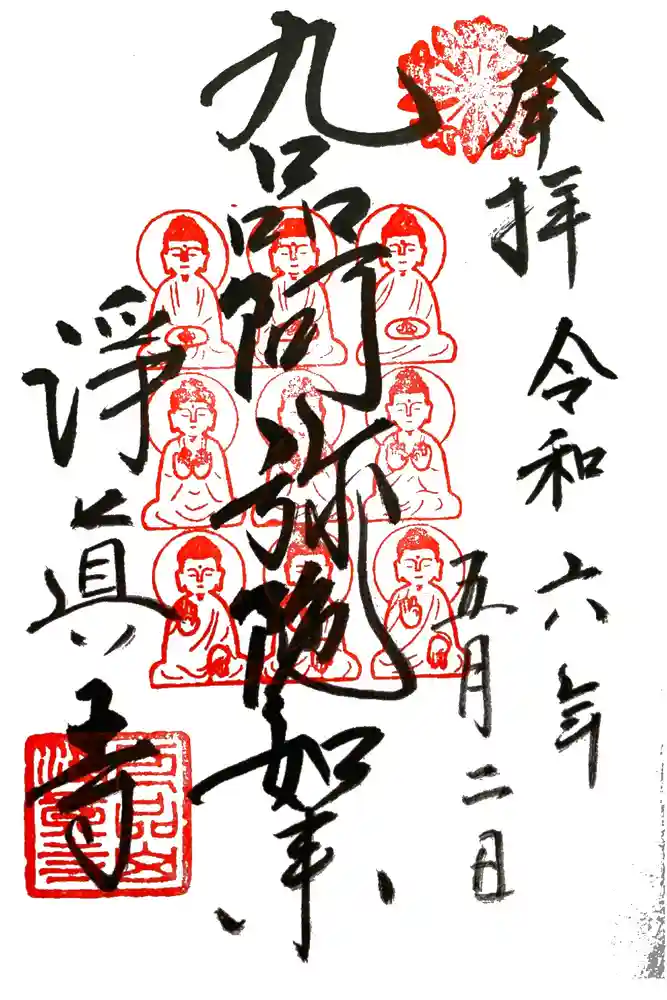 奉拝
令和六年
五月二日
九品阿弥陀如来
淨眞寺